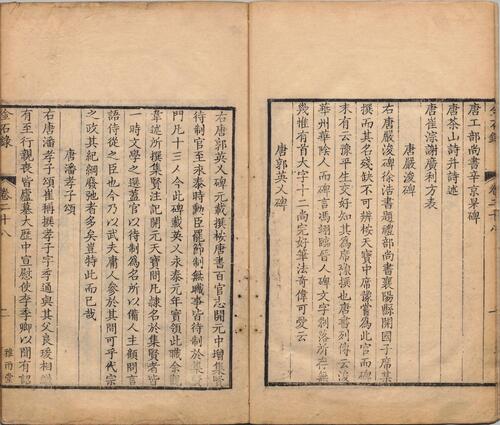 金石錄 卷二十八 一
唐工部尚書辛京杲碑
唐茶山詩并詩述
唐崔淙謝廣利方表
唐嚴浚碑
右唐嚴浚碑徐浩書題禮部尚書襄陽縣開國子席某
撰而其名殘缺不可辨按天寶中席豫嘗為此官而碑
末有云豫平生交好知其為席豫撰也唐書列傳云浚
華州華陰人而碑言馮翊臨晉人碑文字刓落所存無
幾惟有首大字十二尚完好筆法奇偉可愛云
唐郭英乂碑
右唐郭英乂碑元載撰按唐書百官志開元中增集賢
待制官至永泰時勳臣罷節制無職事皆待制於集賢
門凡十三人今此碑載英乂永泰元年實領此職余觀
韋述所撰集賢注記開元天寶間凡隸名於集賢者皆
一時文學之選蓋官以待制為名所以備人主顧問言
語侍從之臣也今乃以武夫庸人參於其間可乎代宗
之政其紀綱廢弛者多矣豈特此而已哉
唐潘孝子頌
右唐潘孝子頌崔稱撰孝子字季通與其父良瑗相繼
有至行親喪皆廬墓大歷中宣慰使李季卿以聞有詔
金石錄 卷二十八 二 雅雨堂